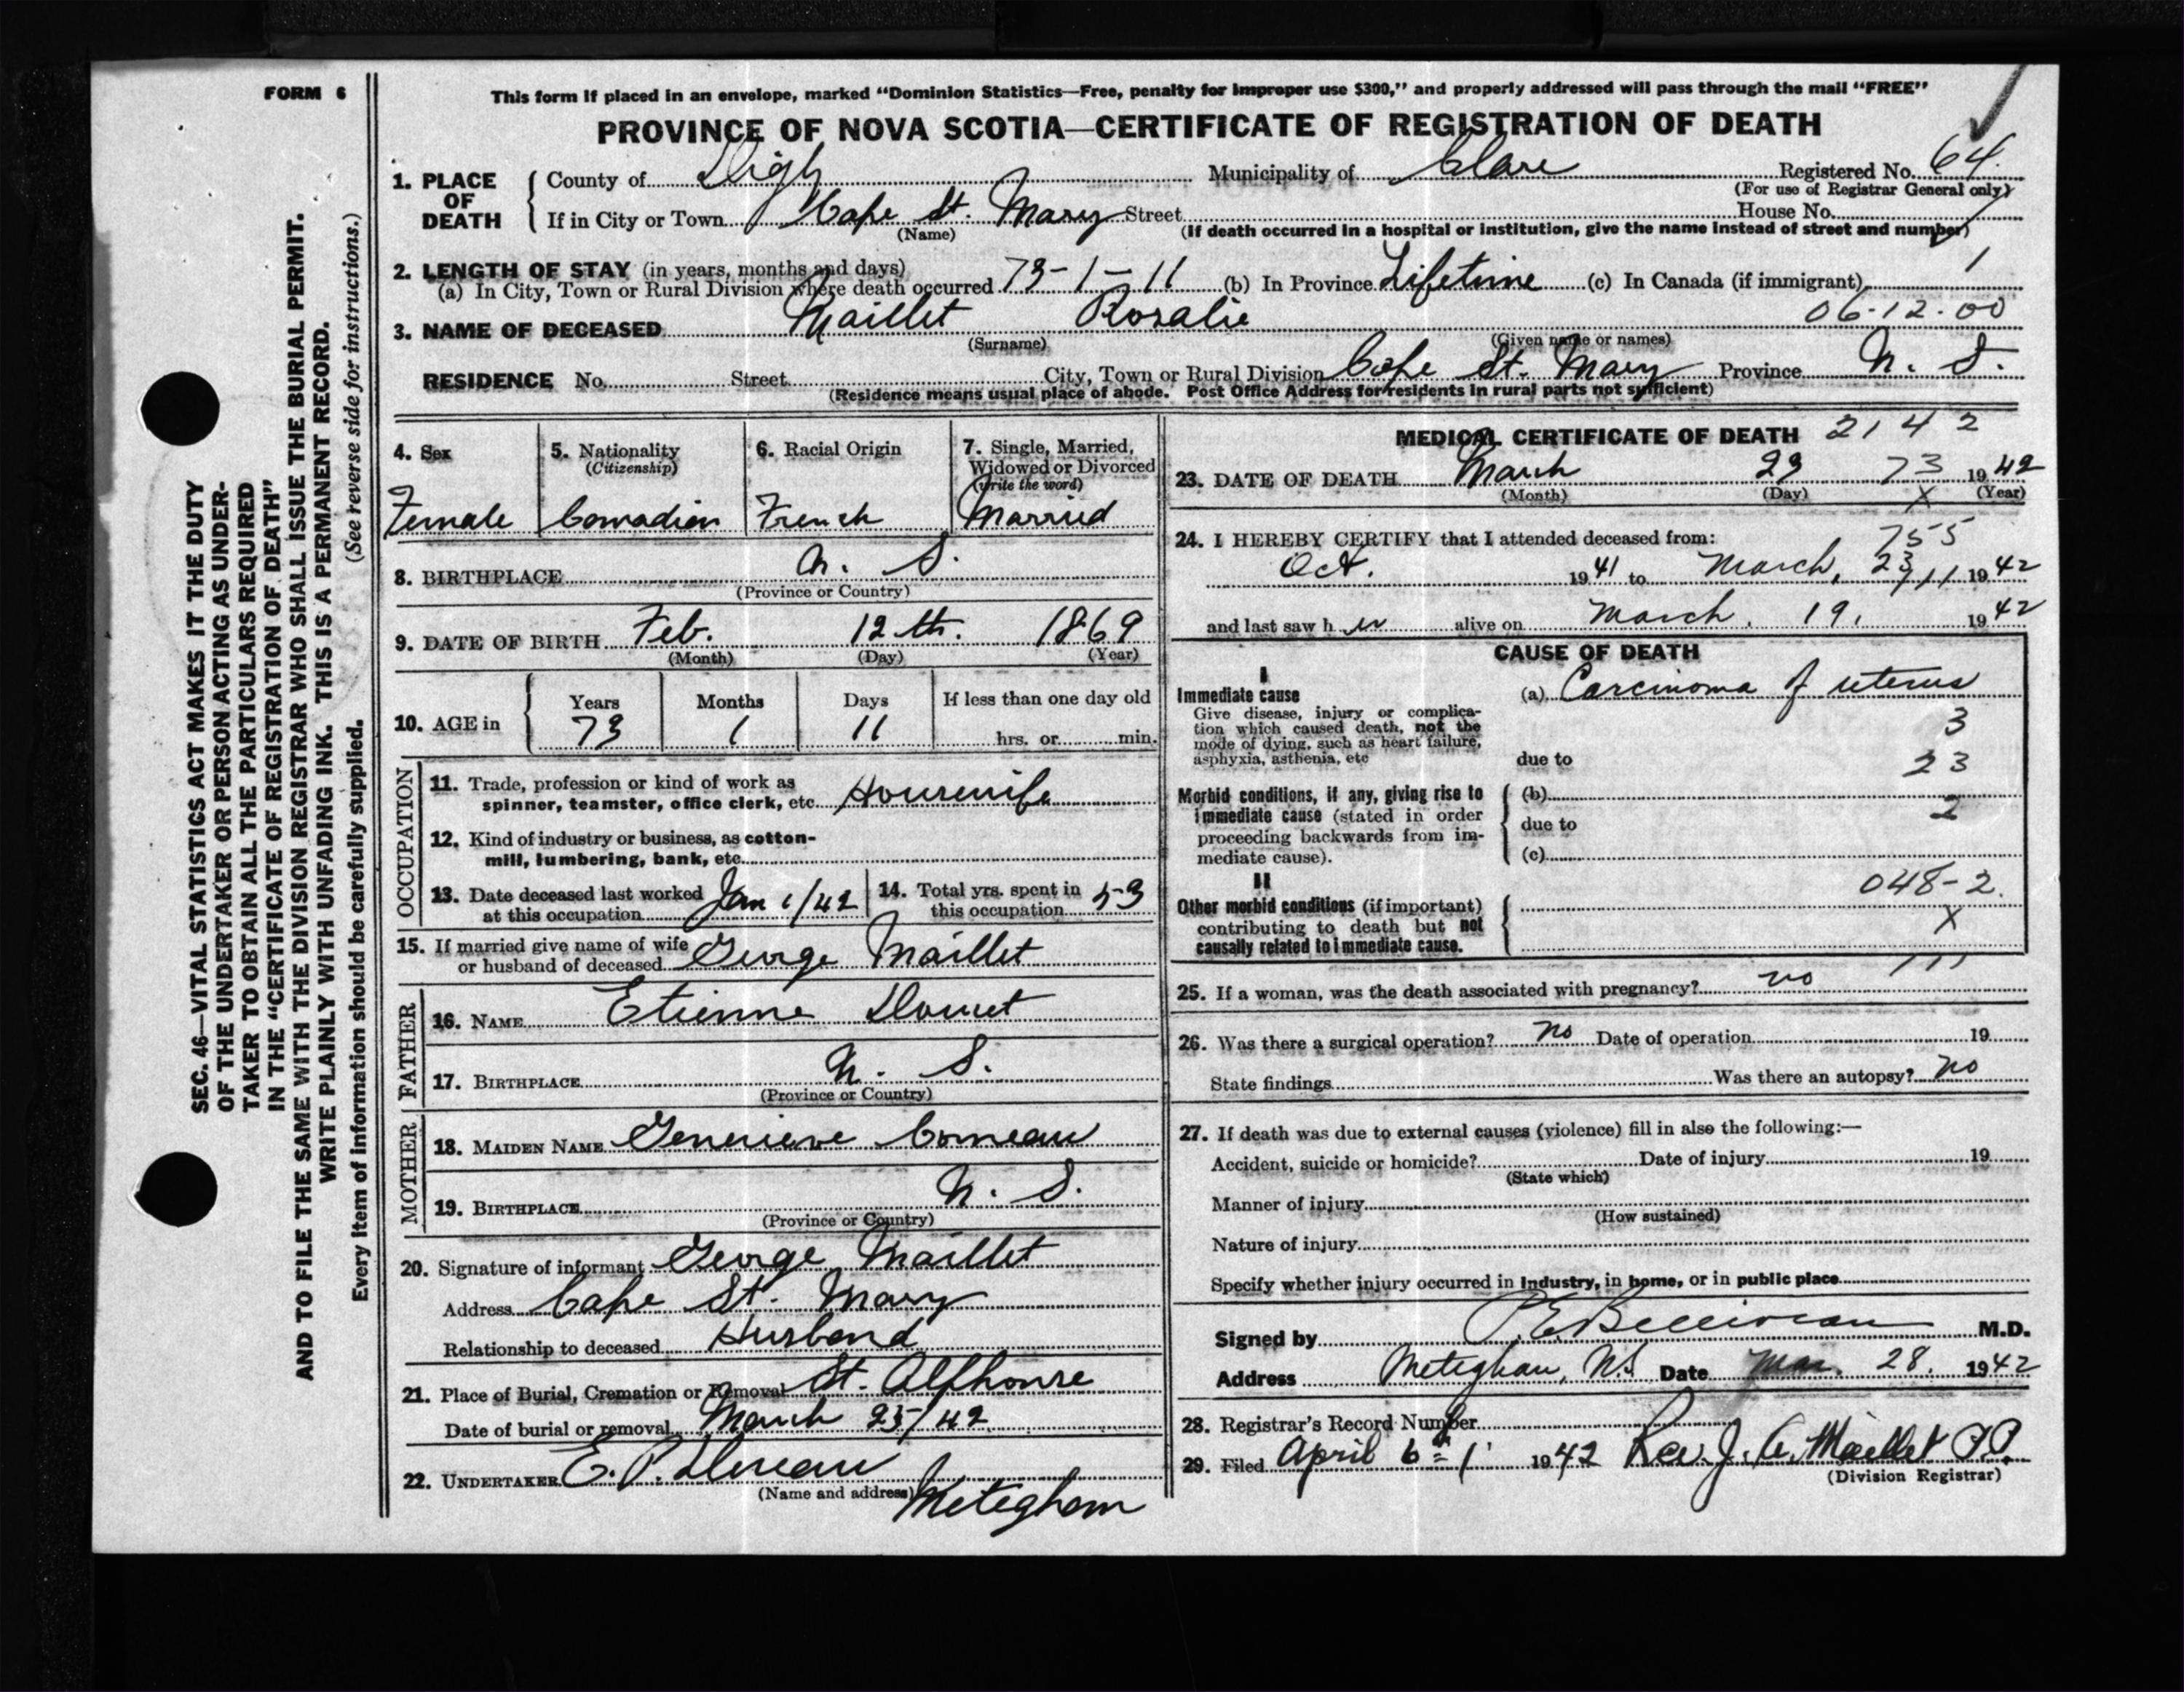 FORM 6
This form if placed in an envelope, marked "Dominion Statistics—Free, penalty for improper use $300," and properly addressed will pass through the mail "FREE"
PROVINCE OF NOVA SCOTIA—CERTIFICATE OF REGISTRATION OF DEATH
SEC. 46—VITAL STATISTICS ACT MAKES IT THE DUTY
OF THE UNDERTAKER OR PERSON ACTING AS UNDER-
TAKER TO OBTAIN ALL THE PARTICULARS REQUIRED
IN THE "CERTIFICATE OF REGISTRATION OF DEATH"
AND TO FILE THE SAME WITH THE DIVISION REGISTRAR WHO SHALL ISSUE THE BURIAL PERMIT.
WRITE PLAINLY WITH UNFADING INK. THIS IS A PERMANENT RECORD.
Every item of information should be carefully supplied. (See reverse side for instructions.)
1. PLACE OF DEATH
County of Digby Municipality of Clare Registered No. 64
(For use of Registrar General only)
If in City or Town Cape St. Mary Street House No.
(Name) (If death occurred in a hospital or institution, give the name instead of street and number)
2. LENGTH OF STAY (in years, months and days)
(a) In City, Town or Rural Division where death occurred 73-1-11 (b) In Province Lifetime (c) In Canada (if immigrant) 1
06-12-00
3. NAME OF DECEASED Maillet Rosalie
(Surname) (Given name or names)
RESIDENCE No. Street City, Town or Rural Division Cape St. Mary Province N. S.
(Residence means usual place of abode. Post Office Address for residents in rural parts not sufficient)
4. Sex
Female
5. Nationality
(Citizenship)
Canadian
6. Racial Origin
French
7. Single, Married,
Widowed or Divorced
(write the word)
Married
8. BIRTHPLACE N. S.
(Province or Country)
9. DATE OF BIRTH Feb. 12 th. 1869
(Month) (Day) (Year)
10. AGE in
Years Months Days If less than one day old
73 1 11 hrs. or min.
OCCUPATION
11. Trade, profession or kind of work as
spinner, teamster, office clerk, etc. Housewife
12. Kind of industry or business, as cotton-
mill, lumbering, bank, etc.
13. Date deceased last worked
at this occupation Jan 1/42
14. Total yrs. spent in
this occupation 53
15. If married give name of wife
or husband of deceased George Maillet
FATHER
16. NAME Etienne Doucet
17. BIRTHPLACE N. S.
(Province or Country)
MOTHER
18. MAIDEN NAME Genevieve Comeau
19. BIRTHPLACE N. S.
(Province or Country)
20. Signature of informant George Maillet
Address Cape St. Mary
Relationship to deceased Husband
21. Place of Burial, Cremation or Removal St. Alphonse
Date of burial or removal March 25/42
22. UNDERTAKER E. P.
(Name and address) Meteghan
MEDICAL CERTIFICATE OF DEATH 2142
23. DATE OF DEATH March 23 73 1942
(Month) (Day) X (Year)
24. I HEREBY CERTIFY that I attended deceased from: 755
Oct. 1941 to March, 23, 1942
and last saw h er alive on March. 19, 1942
CAUSE OF DEATH
I
Immediate cause
Give disease, injury or complica-
tion which caused death, not the
mode of dying, such as heart failure,
asphyxia, asthenia, etc
(a) Carcinoma of uterus
3
due to
23
Morbid conditions, if any, giving rise to
immediate cause (stated in order
proceeding backwards from im-
mediate cause).
(b)
2
due to
(c)
II
048-2.
Other morbid conditions (if important)
contributing to death but not
causally related to immediate cause.
X
111
25. If a woman, was the death associated with pregnancy? no
26. Was there a surgical operation? no Date of operation 19
State findings Was there an autopsy? no
27. If death was due to external causes (violence) fill in also the following:—
Accident, suicide or homicide? Date of injury 19
(State which)
Manner of injury
(How sustained)
Nature of injury
Specify whether injury occurred in industry, in home, or in public place
Signed by P. E. Belliveau M.D.
Address Meteghan, N.S. Date Mar. 28. 1942
28. Registrar's Record Number
29. Filed April 6th 1942 Rev. J. A. Maillet P.P.
(Division Registrar)